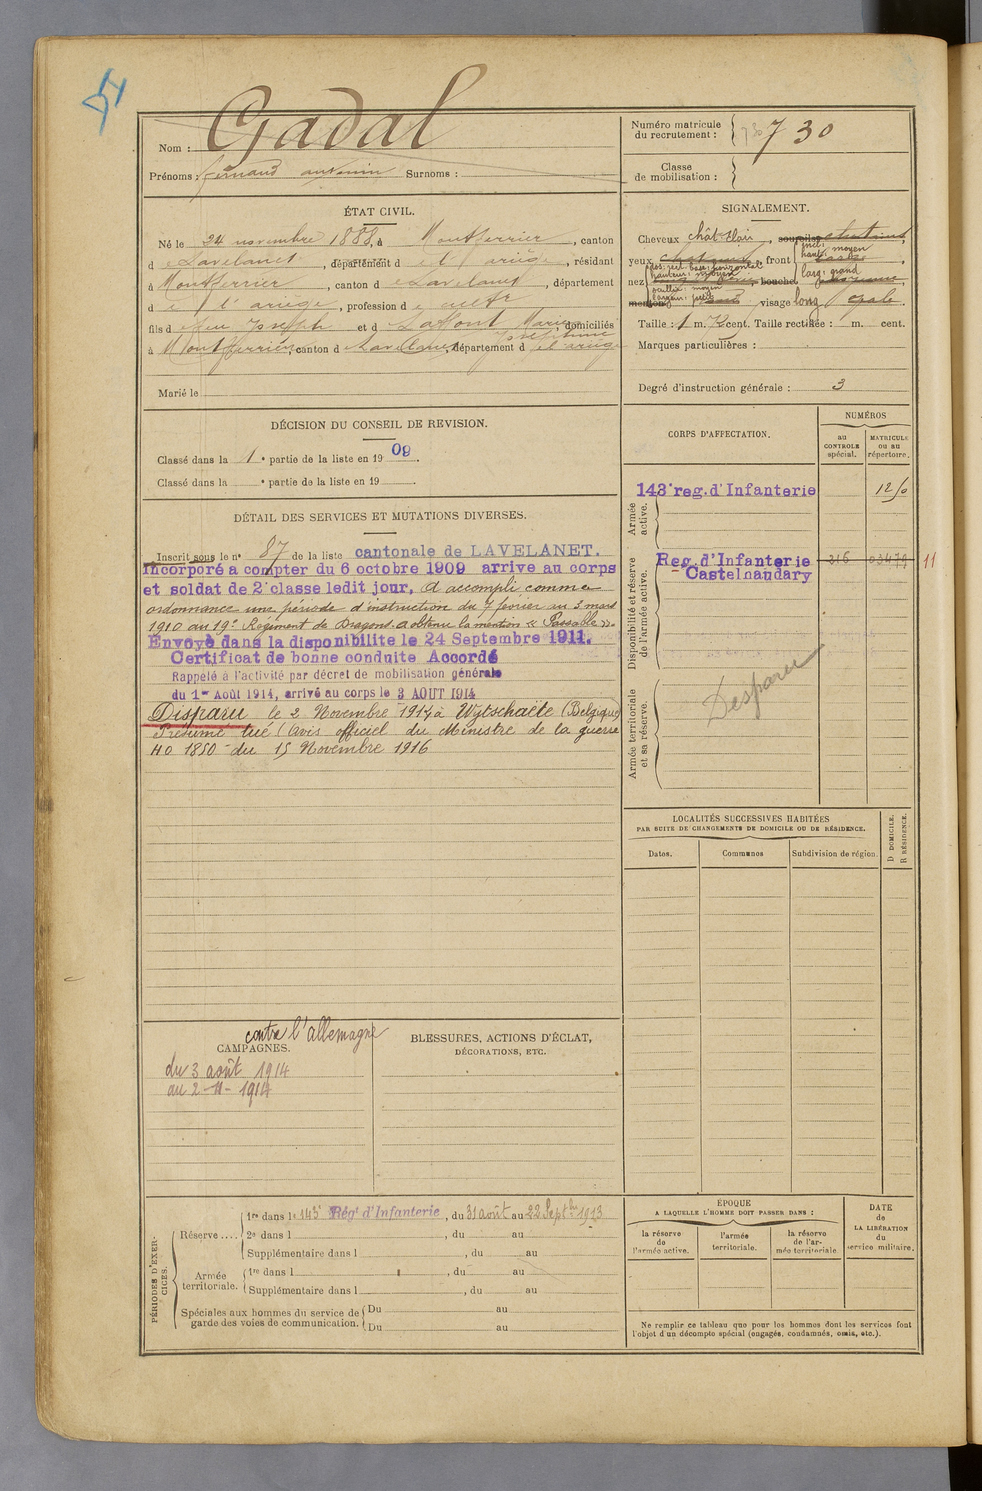 54
Nom : Gadal
Prénoms : fernand antonin Surnoms :
Numéro matricule
du recrutement : 730 730
Classe
de mobilisation :
ÉTAT CIVIL.
Né le 24 novembre 1888, à Montferrier, canton
d e Lavelanet, département d e l'ariège, résidant
à Montferrier, canton d e Lavelanet, département
d e l'ariège, profession de
fils d e feu Joseph et d e Lafont Marie Joséphine, domiciliés
à Montferrier, canton d e Lavelanet, département d e l'ariège
Marié le
SIGNALEMENT.
Cheveux chât clair, sourcils chatains,
yeux, front incl: moyen
haut: moyen
larg: grand
nez dos: rect. base: horizontal
hauteur: moyen
saillie: moyen
largeur: petit
bouche
menton visage long Ovale
Taille : 1 m. 72 cent. Taille rectifiée : m. cent.
Marques particulières :
Degré d'instruction générale : 3
DÉCISION DU CONSEIL DE REVISION.
Classé dans la 1e partie de la liste en 1909
Classé dans la e partie de la liste en 19
DÉTAIL DES SERVICES ET MUTATIONS DIVERSES.
Inscrit sous le n° 87 de la liste cantonale de LAVELANET.
Incorporé a compter du 6 octobre 1909 arrive au corps
et soldat de 2e classe ledit jour, A accompli comme
ordonnance une période d'instruction du 7 février au 5 mars
1910 au 19e Régiment de Dragons. a obtenu la mention « Passable ».
Envoyé dans la disponibilite le 24 Septembre 1911.
Certificat de bonne conduite Accordé
Rappelé à l'activité par décret de mobilisation générale
du 1er Août 1914, arrivé au corps le 3 AOUT 1914
Disparu le 2 Novembre 1914 à Wytschaete (Belgique)
Présumé tué (Avis officiel du Ministre de la guerre
HO 1850 du 15 Novembre 1916
CORPS D'AFFECTATION.
NUMÉROS
au
CONTROLE
spécial.
MATRICULE
ou au
répertoire.
Armée
active.
143e reg. d'Infanterie
Disponibilité et réserve
de l'armée active.
Reg. d'Infanterie 316 03479 11
Castelnaudary
Armée territoriale
et sa réserve.
Disparu
LOCALITÉS SUCCESSIVES HABITÉES
PAR SUITE DE CHANGEMENTS DE DOMICILE OU DE RÉSIDENCE.
Dates.
Communes
Subdivision de région.
D DOMICILE.
R RÉSIDENCE.
CAMPAGNES.
contre l'allemagne
du 3 août 1914
au 2-11-1914
BLESSURES, ACTIONS D'ÉCLAT,
DÉCORATIONS, ETC.
PÉRIODES D'EXER-
CICES.
Réserve ....
1re dans le 143e Régt d'Infanterie, du 31 août au 22 Septbre 1913
2e dans l, du au
Supplémentaire dans l, du au
Armée
territoriale.
1re dans l, du au
Supplémentaire dans l, du au
Spéciales aux hommes du service de
garde des voies de communication.
Du au
Du au
ÉPOQUE
A LAQUELLE L'HOMME DOIT PASSER DANS :
la réserve
de
l'armée active.
l'armée
territoriale.
la réserve
de l'ar-
mée territoriale
DATE
de
LA LIBÉRATION
du
service militaire.
Ne remplir ce tableau que pour les hommes dont les services font
l'objet d'un décompte spécial (engagés, condamnés, omis, etc.).